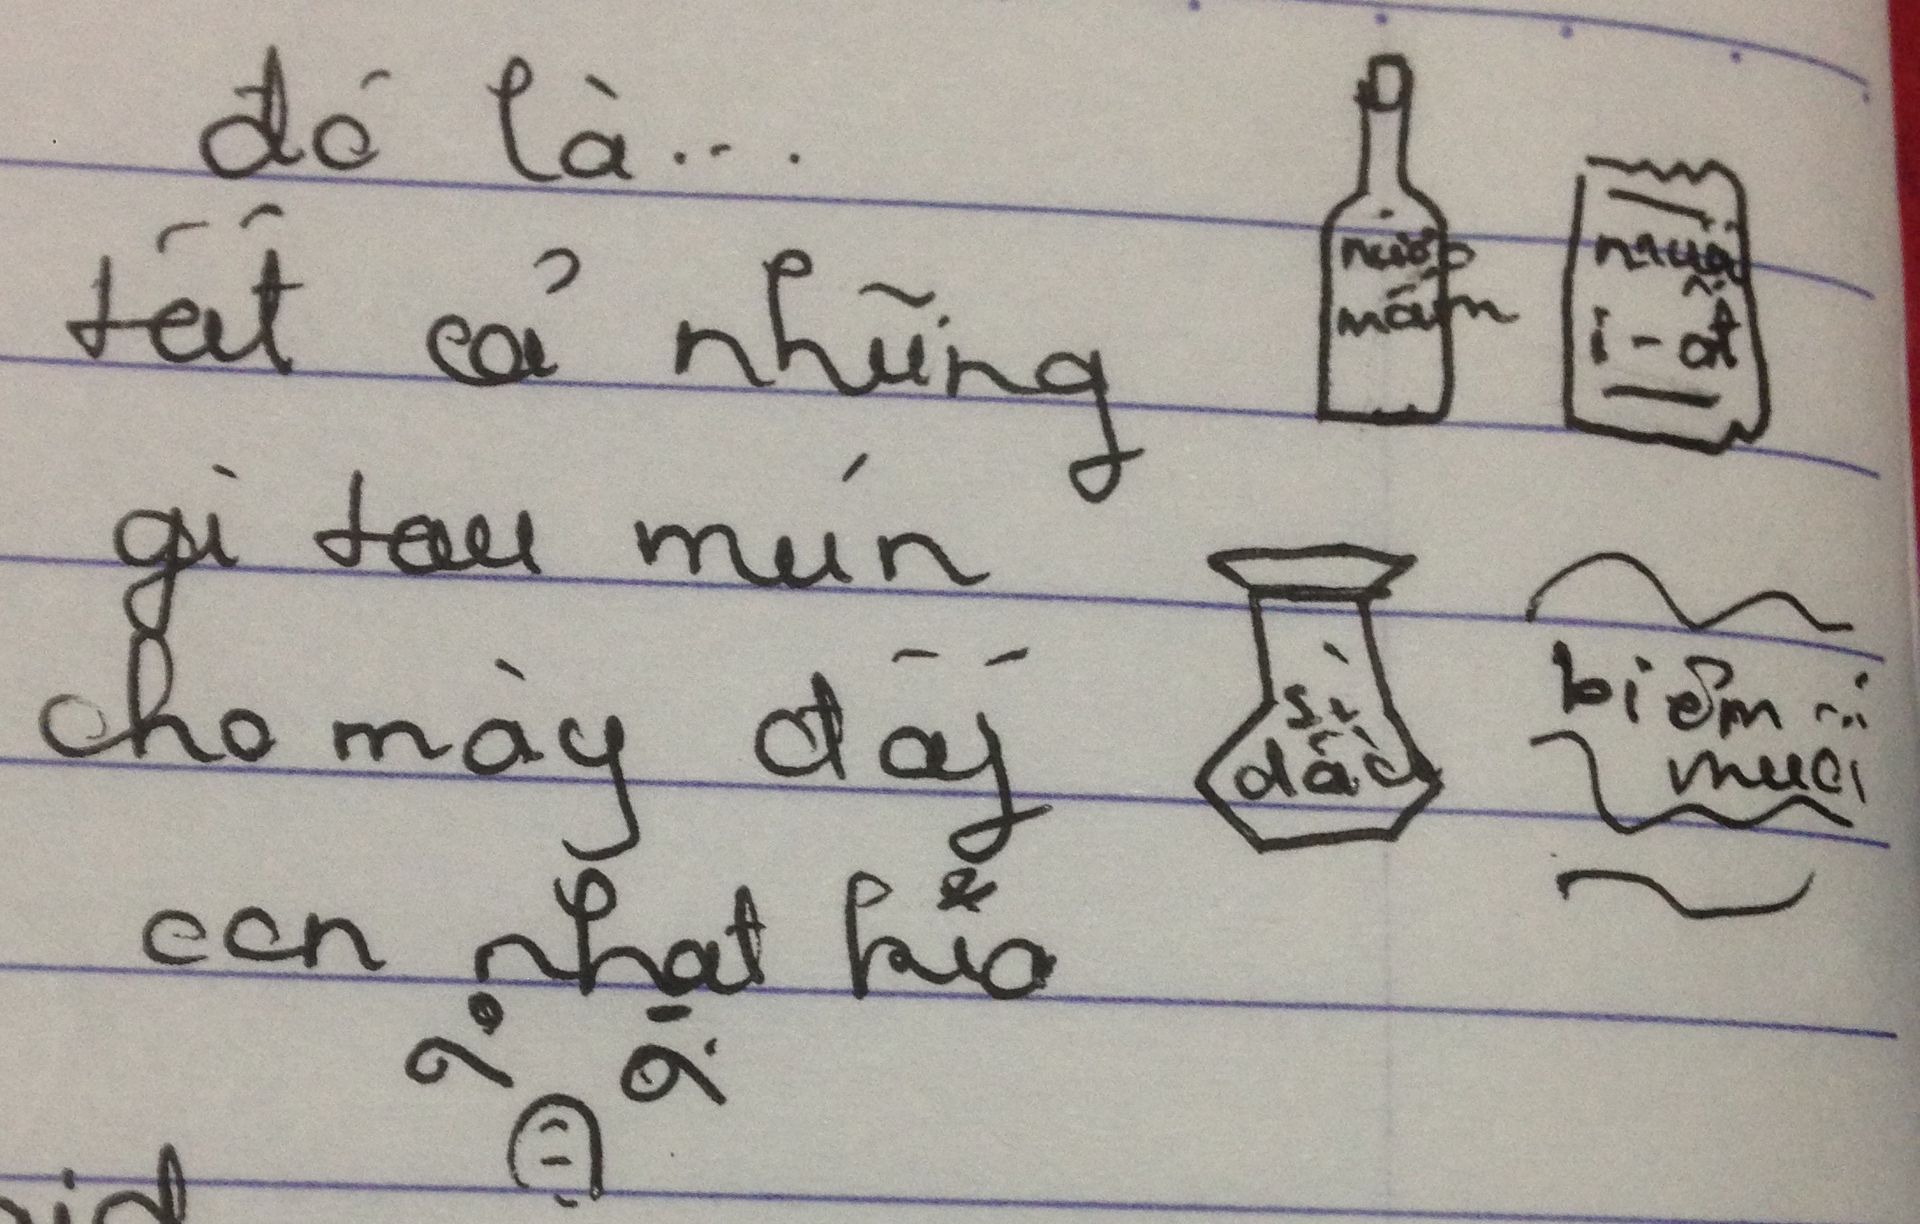 đó là...
tất cả những
gì tau mún
cho mày đấy
con nhạt
nước
mắm
muối
i-ốt
sì
dầu
biển
muối